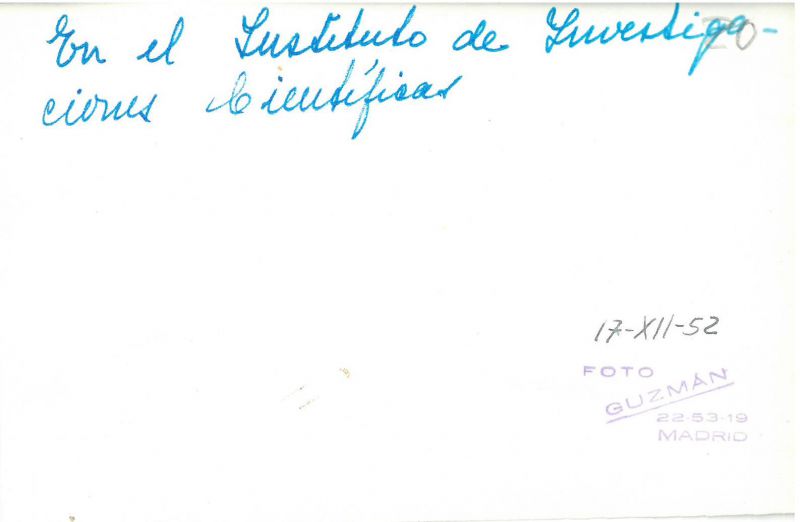 En el Instituto de Investiga-
ciones Científicas
20
17-XII-52
FOTO
GUZMÁN
22-53-19
MADRID